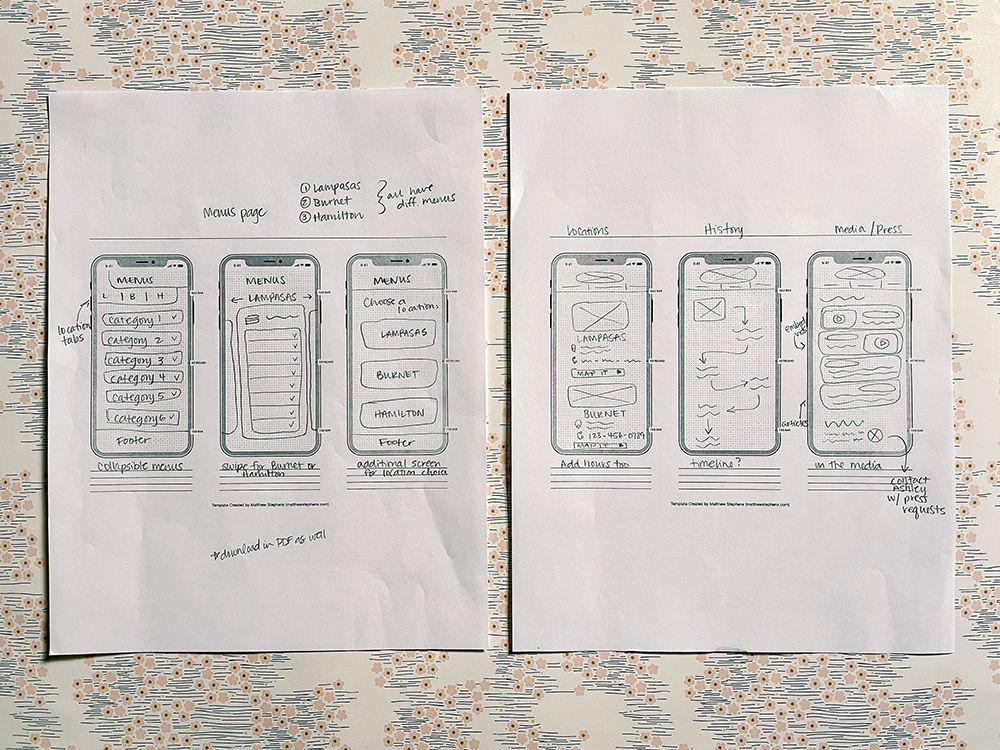 Menus page
① Lampasas
② Burnet
③ Hamilton
all have
diff. menus
9:41
MENUS
L | B | H
Category 1
Category 2
Category 3
Category 4
Category 5
Category 6
Footer
location
tabs
collapsible menus
9:41
MENUS
← LAMPASAS →
swipe for Burnet or
Hamilton
9:41
MENUS
Choose a
location:
LAMPASAS
BURNET
HAMILTON
Footer
additional screen
for location choice
Template Created by Matthew Stephens (matthewstephens.com)
*download in PDF as well
Locations
9:41
LAMPASAS
MAP IT
BURNET
123-456-0789
MAP IT
Add hours too
History
9:41
timeline?
Media/Press
9:41
embed
vids
articles
in the media
contact
Ashley
w/ press
requests
Template Created by Matthew Stephens (matthewstephens.com)